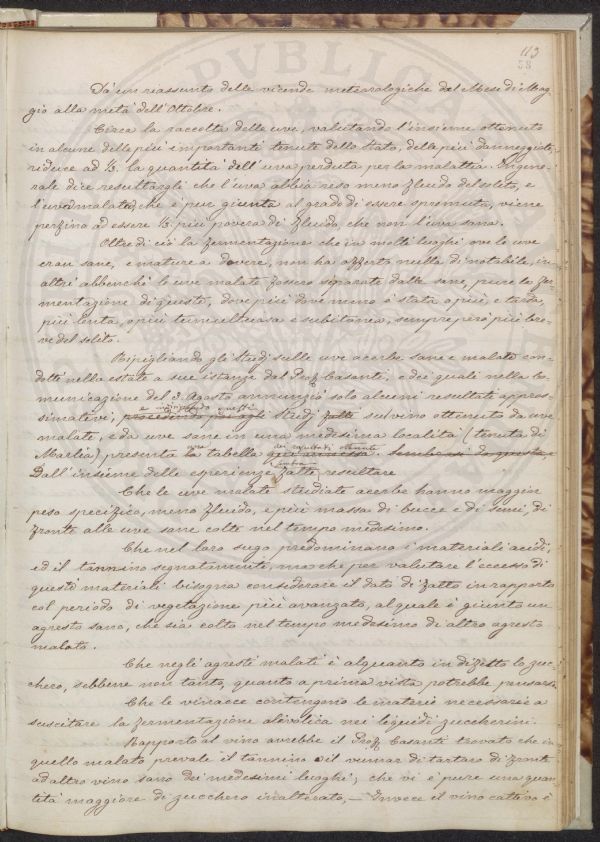 113
58
Dà un reassunto delle vicende meteorologiche del Mese di Mag-
gio alla metà dell'Ottobre.
Circa la raccolta delle uve, valutando l'insieme ottenuto
in alcune delle più importanti tenute dello Stato, delle più danneggiate,
riduce ad ⅓ la quantità dell'uva perduta per la malattia. In gene-
rale dice resultargli che l'uva abbia reso meno fluido del solito, e
l'uva malata, che è pur giunta al grado di essere spremuta, viene
perfino ad essere ⅓ più povera di fluido, che non l'uva sana.
Oltre di ciò la fermentazione che in molti luoghi ove le uve
eran sane, e mature a dovere, non ha offerto nulla di notabile, in
altri abbenchè le uve malate fossero separate dalle sane, pure la fer-
mentazione di questi, dove più dove meno è stata o più, e tarda,
più lenta, o più tumultuosa e subitanea, sempre però più bre-
ve del solito.
Ripigliando gli studj sulle uve acerbe sane e malate con-
dotti nella estate a sue istanze dal Prof. Casanti, e dei quali nella co-
municazione del 3. Agosto annunziò solo alcuni resultati appros-
simativi, studj fatti sul vino ottenuto da uve
malate, e da uve sane in una medesima località (tenuta di
Marlia), presenta la tabella
Dall'insieme delle esperienze fatte resultare
Che le uve malate studiate acerbe hanno maggior
peso specifico, meno fluido, e più massa di bucce e di semi, di
fronte alle uve sane colte nel tempo medesimo.
Che nel loro sugo predominano i materiali acidi,
ed il tannino segnatamente, ma che per valutare l'eccesso di
questi materiali bisogna considerare il dato di fatto in rapporto
col periodo di vegetazione più avanzato, al quale è giunto un
agresto sano, che sia colto nel tempo medesimo di altro agresto
malato.
Che negli agresti malati è alquanto in difetto lo zuc-
chero, sebbene non tanto, quanto a prima vista potrebbe pensarsi.
Che le vinacce contengono le materie necessarie a
suscitare la fermentazione alcoolica nei liquidi zuccherini.
Rapporto al vino avrebbe il Prof. Casanti trovato che in
quello malato prevale il tannino ed il cremor di tartaro di fronte
ad altro vino sano dei medesimi luoghi; che vi è pure una quan-
tità maggiore di zucchero inalterato, — Invece il vino cattivo è